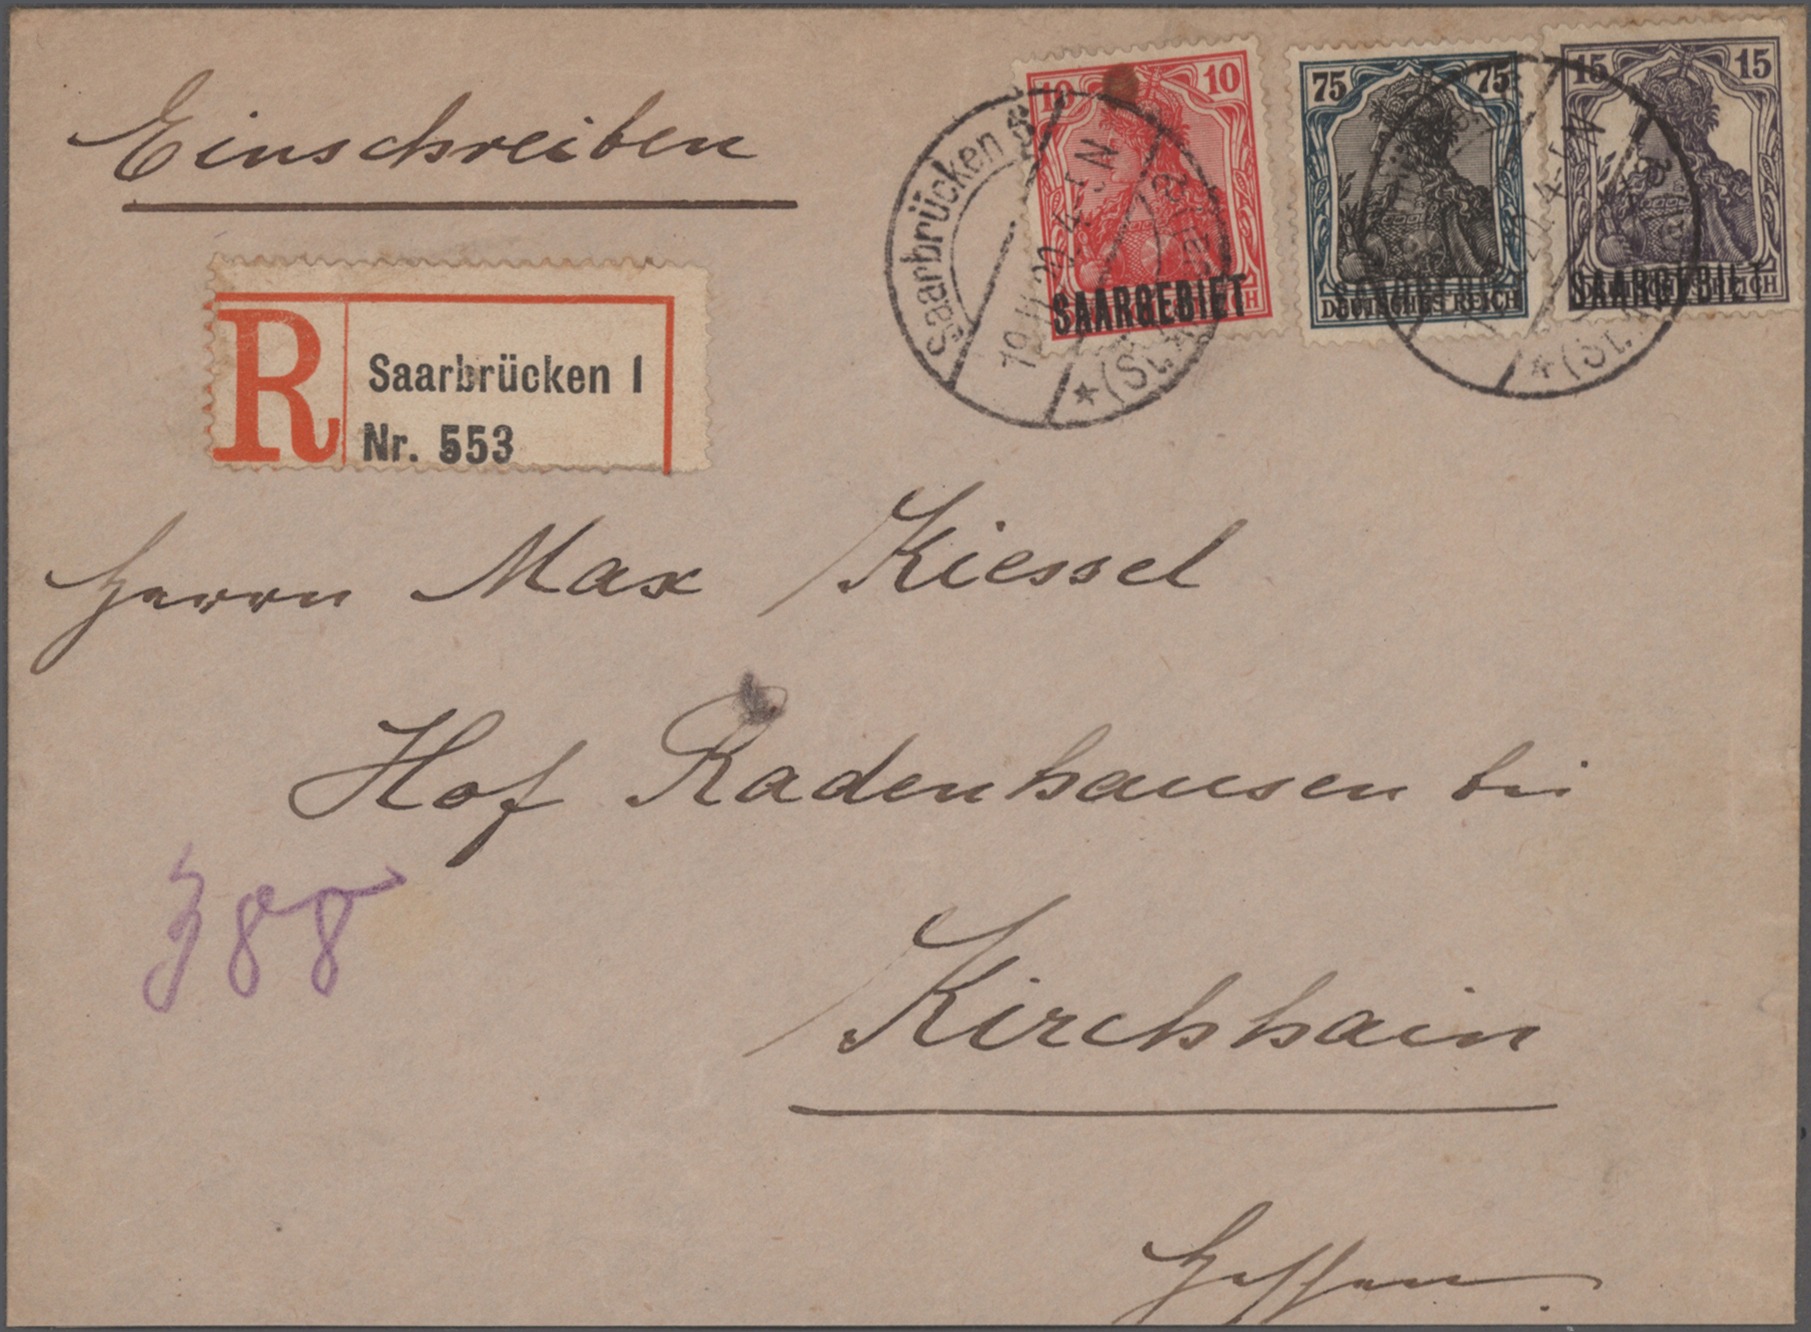 Einschreiben
10 10
SAARGEBIET
75 75
SAARGEBIET
DEUTSCHES REICH
15 15
SAARGEBIET
DEUTSCHES REICH
Saarbrücken
4-5 N
* (St.
R
Saarbrücken 1
Nr. 553
Herrn Max Kiessel
Hof Radenhausen bei
388
Kirchhain
Hessen.